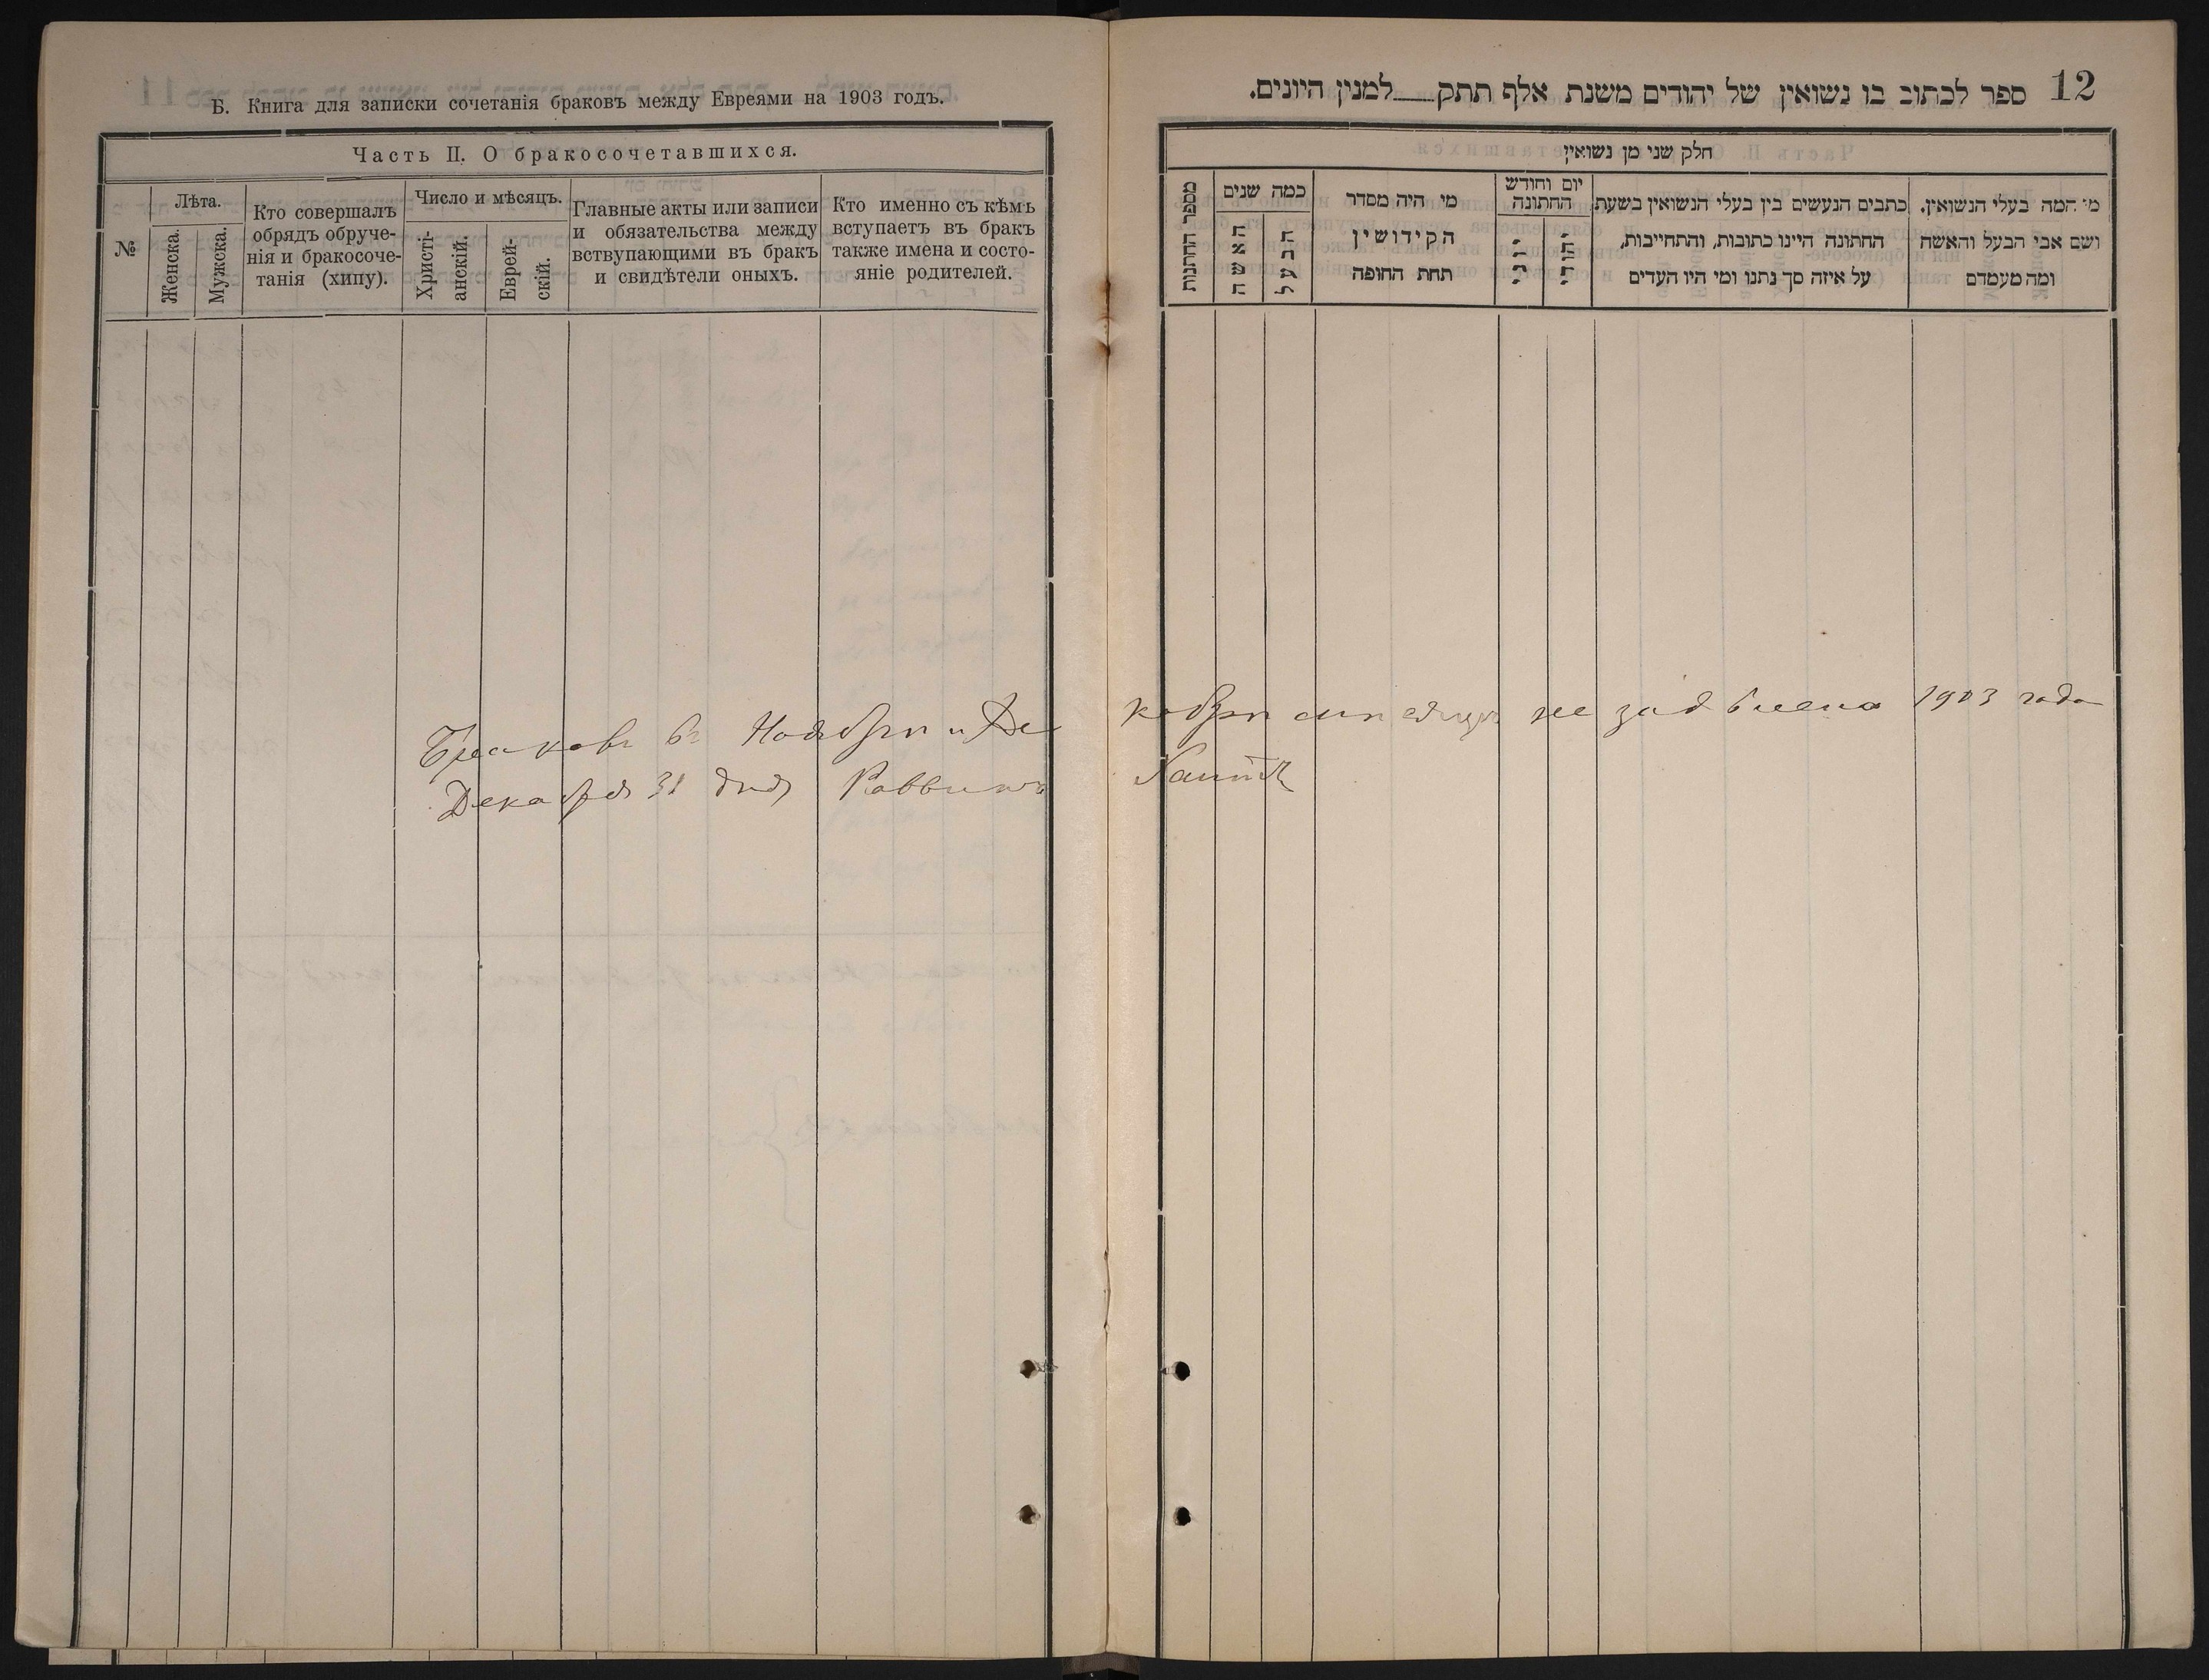 Б. Книга для записки сочетанія браковъ между Евреями на 1903 годъ.
Часть II. О бракосочетавшихся.
№
Лѣта.
Женска.
Мужска.
Кто совершалъ
обрядъ обруче-
нія и бракосоче-
танія (хипу).
Число и мѣсяцъ.
Христі-
анскій.
Еврей-
скій.
Главные акты или записи
и обязательства между
вступающими въ бракъ
и свидѣтели оныхъ.
Кто именно съ кѣмъ
вступаетъ въ бракъ
также имена и состо-
яніе родителей.
12
ספר לכתוב בו נשואין של יהודים משנת אלף תתק___למנין היונים.
חלק שני מן נשואין
מי המה בעלי הנשואין.
ושם אבי הבעל והאשה
ומה מעמדם
כתבים הנעשים בין בעלי הנשואין בשעת
החתונה היינו כתובות, והתחייבות,
על איזה סך נתנו ומי היו העדים
יום וחודש
החתונה
יהודי
יוני
מי היה מסדר
הקידושין
תחת החופה
כמה שנים
הבעל
האשה
מספר החתנות
Браковъ въ Ноябрѣ и Де кабрѣ мѣсяцѣ не заявлено 1903 года
Декабря 31 дня Раввинъ